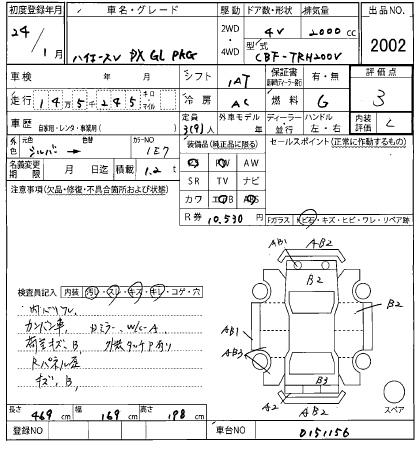 初度登録年月 車名・グレード 駆動 ドア数・形状 排気量 出品NO.
24/1月 ハイエースV DX GL PKG 2WD/4WD 4V 2000cc 2002
型式 CBF-TRH200V
車検 年 月 シフト IAT 保証書 有・無 評価点
走行 14万5千245 キロ マイル 冷房 AC 燃料 G 3
車歴 自家用・レンタ・事業用( ) 定員 3(9)人 外車モデル 年 ディーラー・並行 ハンドル 左・右 内装評価 C
外色 元色 シルバー → 色替 カラーNO 1E7 装備品(純正品に限る) セールスポイント(正常に作動するもの)
名義変更期限 月 日迄 積載 1.2t PS PW AW
SR TV ナビ
注意事項(欠品・修復・不具合箇所および状態) カワ エアB ABS
R券 10,530円 Fガラス 飛石・キズ・ヒビ・ワレ・リペア跡
AB1 AB2
B2 B2
検査員記入 内装 汚レ・スレ・キズ・キレ・コゲ・穴
カンバン車
荷室キズ、B、
Rパネル
キズ、B、
AB1
AB3
B3
A2 AB2
スペア
長さ 469cm 幅 169cm 高さ 198cm
登録NO 車台NO 0151156